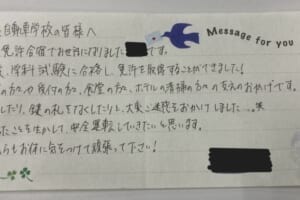 自動車学校の皆様へ
Message for you
免許合宿でお世話になりました です。
学科試験に合格し、免許を取得することができました!
の方々や受付の方、食堂の方、ホテルの清掃の方々の支えのおかげです。
したり、鍵の札をなくしたりと、大変ご迷惑をおかけしました…。笑
たことを生かして、安全運転していきたいと思います。
らもお体に気をつけて頑張って下さい!